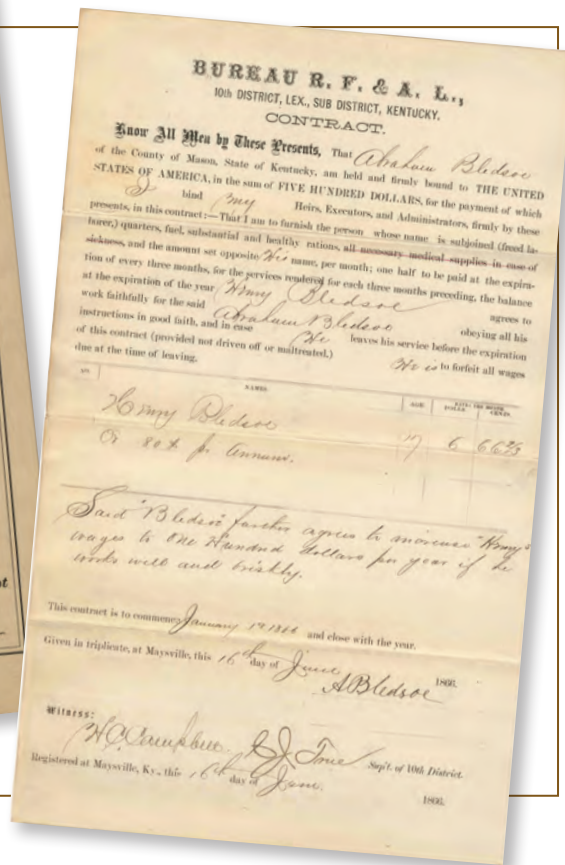 BUREAU R. F. & A. L.,
10th DISTRICT, LEX., SUB DISTRICT, KENTUCKY.
CONTRACT.
Know All Men by These Presents, That Abraham Bledsoe
of the County of Mason, State of Kentucky, am held and firmly bound to THE UNITED
STATES OF AMERICA, in the sum of FIVE HUNDRED DOLLARS, for the payment of which
I bind my Heirs, Executors, and Administrators, firmly by these
presents, in this contract:—That I am to furnish the person whose name is subjoined (freed la-
borer,) quarters, fuel, substantial and healthy rations, all necessary medical supplies in case of
sickness, and the amount set opposite His name, per month; one half to be paid at the expira-
tion of every three months, for the services rendered for each three months preceding, the balance
at the expiration of the year Henry Bledsoe agrees to
work faithfully for the said Abraham Bledsoe obeying all his
instructions in good faith, and in case He leaves his service before the expiration
of this contract (provided not driven off or maltreated,) He is to forfeit all wages
due at the time of leaving.
NO. NAMES. AGE. RATE PER MONTH
DOLLS. CENTS.
Henry Bledsoe 17 6 66 2/3
Or 80$ pr Annum.
Said "Bledsoe" further agrees to increase "Henry's"
wages to One Hundred dollars per year if he
works well and briskly.
This contract is to commence January 1st 1866 and close with the year.
Given in triplicate, at Maysville, this 16th day of June 1866.
ABledsoe
Witness:
H C Campbell Sup't. of 10th District.
Registered at Maysville, Ky., this 16th day of June. 1866.